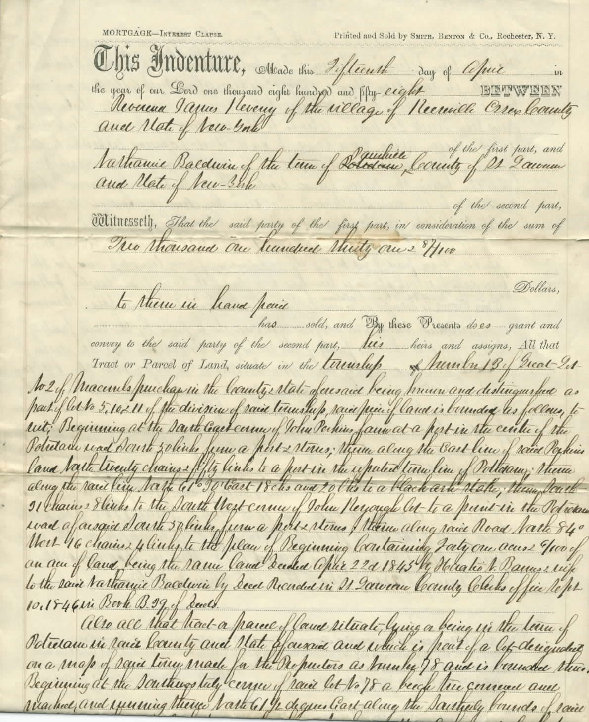 MORTGAGE—INTEREST CLAUSE. Printed and Sold by SMITH, BENTON & Co., Rochester, N. Y.
This Indenture, Made this Fifteenth day of April in
the year of our Lord one thousand eight hundred and fifty-eight BETWEEN
Reverend James of the village of Keeseville Essex County
and State of New-York
of the first part, and
Baldwin of the town of County of St
and State of New-York
of the second part,
Witnesseth, That the said party of the first part, in consideration of the sum of
thousand one hundred thirty one & /100
Dollars,
to them in hand paid
has sold, and By these Presents does grant and
convey to the said party of the second part, his heirs and assigns, All that
Tract or Parcel of Land, situate in the township of Number 13 of Great
No 2 of purchase in the County & state aforesaid being known and distinguished as
part of lot No 5, 10 & 11 of the division of said township said piece of land is bounded as follows, to
wit; Beginning at the South East corner of John Perkins farm at a post in the centre of the
Potsdam road South 30 links from a post & stones; thence along the East line of said Perkins
land North twenty chains & fifty links to a post in the line of Potsdam; thence
along the said line North 61° 30' East 18 chs and 20 links to a black ash stake, thence South
21 chains 8 links to the South West corner of John lot to a point in the Potsdam
road aforesaid South 30 links from a post & stones; thence along said Road North 84°
West 16 chains & 4 links to the place of Beginning Containing Forty one acres & /100 of
an acre of land, being the same land Deeded April 22d 1845 by Horatio N. & wife
to the said Baldwin by Deed Recorded in St County Clerks office Sept
10, 1846 in Book B. 39 of Deeds.
Also all that tract or parcel of land situate, lying or being in the town of
Potsdam in said County and State aforesaid and which is part of a lot designated
on a map of said town made for the Proprietors as number 78 and is bounded thus,
Beginning at the corner of said lot No 78 a beech tree cornered and
marked, and running thence North 61½ degrees East along the Southerly bounds of said